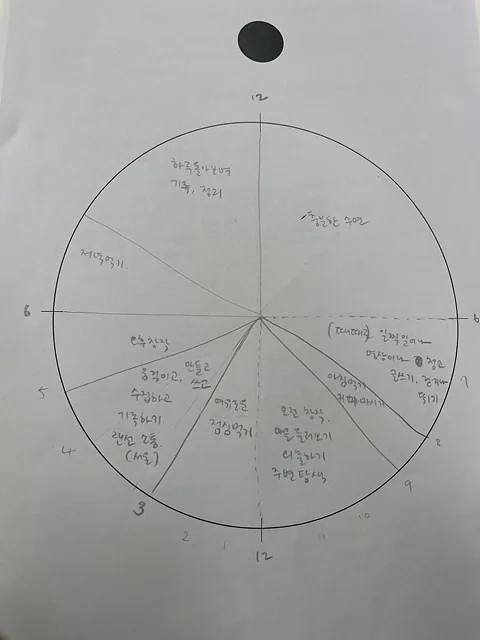 12
하루돌아보며
기록, 정리
충분한 수면
저녁먹기
6
6
(때때로) 일찍일어나
명상이나 청소
글쓰기, 걷거나
뛰기
7
8
아침먹기
커피마시기
9
10
11
오전 창작.
마을 둘러보기
외출하기
주변탐색
12
여유로운
점심먹기
1
2
3
오후창작
움직이고, 만들고
쓰고
수집하고
기록하기
랜선 소통.
(서울)
4
5